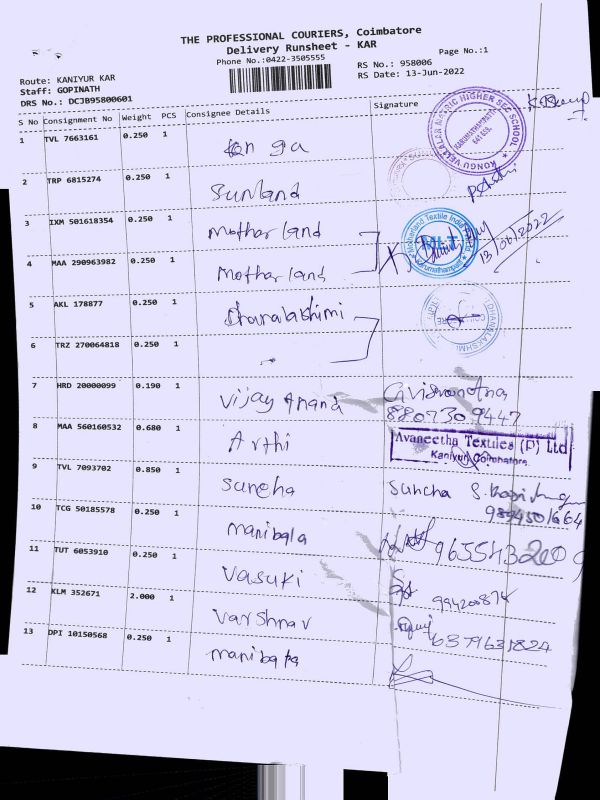 THE PROFESSIONAL COURIERS, Coimbatore
Delivery Runsheet - KAR
Phone No.:0422-3505555
Page No.:1
Route: KANIYUR KAR
Staff: GOPINATH
DRS No.: DCJB95800601
RS No.: 958006
RS Date: 13-Jun-2022
S No Consignment No Weight PCS Consignee Details Signature
1 TVL 7663161 0.250 1
KONGU VELLALAR MATRIC HIGHER SEC SCHOOL
2 TRP 6815274 0.250 1 Sunland
3 IXM 501618354 0.250 1 Mothar land
Motherland Textile India
13/06/2022
4 MAA 290963982 0.250 1 Mothar land
5 AKL 178877 0.250 1 Dhanalakshmi
DHANALAKSHMI
6 TRZ 270064818 0.250 1
7 HRD 20000099 0.190 1 Vijay Anand
8807309447
8 MAA 560160532 0.680 1 Arthi
Avaneetha Textiles (P) Ltd
Kaniyur, Coimbatore
9 TVL 7093702 0.850 1 Suncha Suncha
10 TCG 50185578 0.250 1 manibala
11 TUT 6053910 0.250 1 Vasuki
12 KLM 352671 2.000 1 Varshnav
13 DPI 10150568 0.250 1 manibala